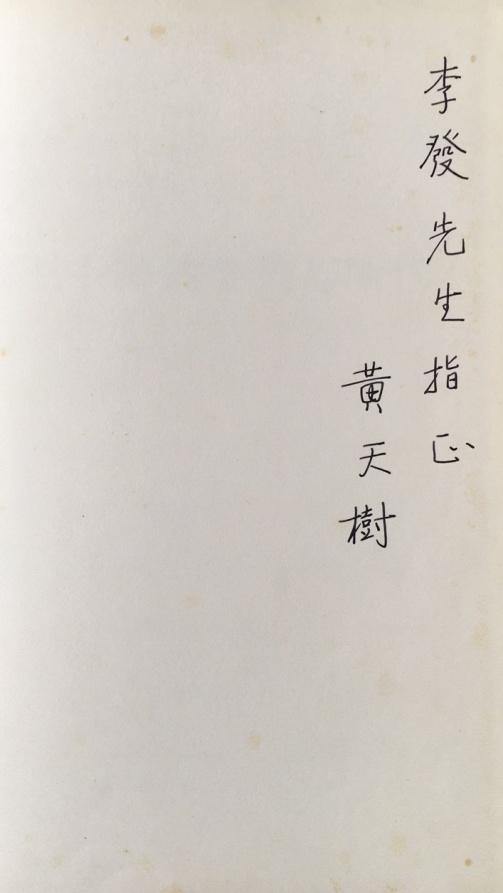 李發先生指正
黃天樹